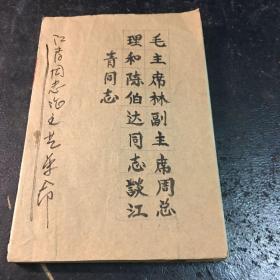 毛主席林副主席周总
理和陈伯达同志談江
青同志
江青同志论文艺革命